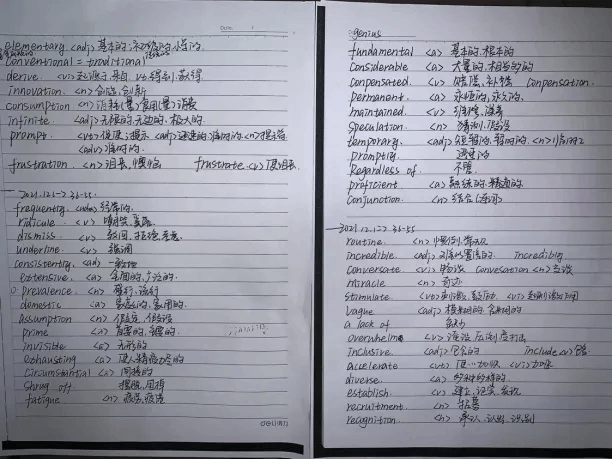 elementary <adj> 基本的;初级的,小学的
Conventional = traditional
derive <v> 起源于,来自 vt.得到,获得
innovation <n> 创造,创新
consumption <n> 消耗(量)食用(量)消费
infinite <adj> 无限的,无边的,极大的
prompt <vt> 促使;提示 <adj> 迅速的,准时的 <n> 提示
<adv> 准时的
frustration <n> 沮丧,懊恼 frustrate <v> 使沮丧
2021.12.1~2 36-55
frequently <adv> 经常的
ridicule <v> 嘲笑,
dismiss <v> 驳回,拒绝
underline <v> 强调
consistently <ad> 一致地
extensive <a> 全面的,广泛的
prevalence <n> 盛行,流行
domestic <a> 家庭的,
assumption <n> 假定,假设
prime <a> 首要的,主要的
invisible <a> 无形的
exhausting <a> 使人精疲力竭的
Circumstantial <a> 间接的
Shrug off 摆脱,甩掉
fatigue <n> 疲劳,疲倦
deli
Date.
genius
fundamental <a> 基本的,根本的
Considerable <a> 大量的,相当多的
Conpensated <v> 赔偿,补偿 Conpensation
permanent <a> 永恒的,永久的
maintained <v> 维修,
Speculation <n> 猜测,假设
temporary <adj> 短暂的,暂时的 <n> 临时工
promptly 迅速的
Regardless of 不管
proficient <a> 熟练的,精通的
Conjunction <n> 结合(连词)
2021.12.1~2 36-55
routine <n> 惯例,常规
incredible <adj> 难以置信的 Incredibly
Conversate <vi> 交谈 Convesation <n> 会谈
miracle <n> 奇迹
stimulate
Vague <adj> 模糊的,含糊的
a lack of 缺少
overwhelm <v> 淹没,压倒,打击
inclusive <adj> 包含的 include <v> 包含
accelerate <vt> 使…加快 <vi> 加速
diverse <a> 多种多样的
establish <v> 建立,证实,发现
recruitment <n> 招募
recagnition <n> 承认,认出,识别